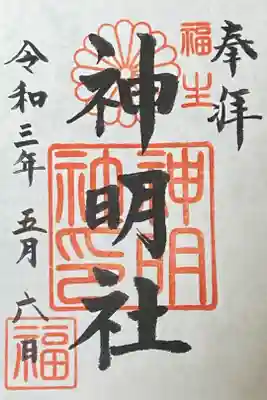 奉拝
福生
神明社
神明社印
令和三年 五月 六日
福